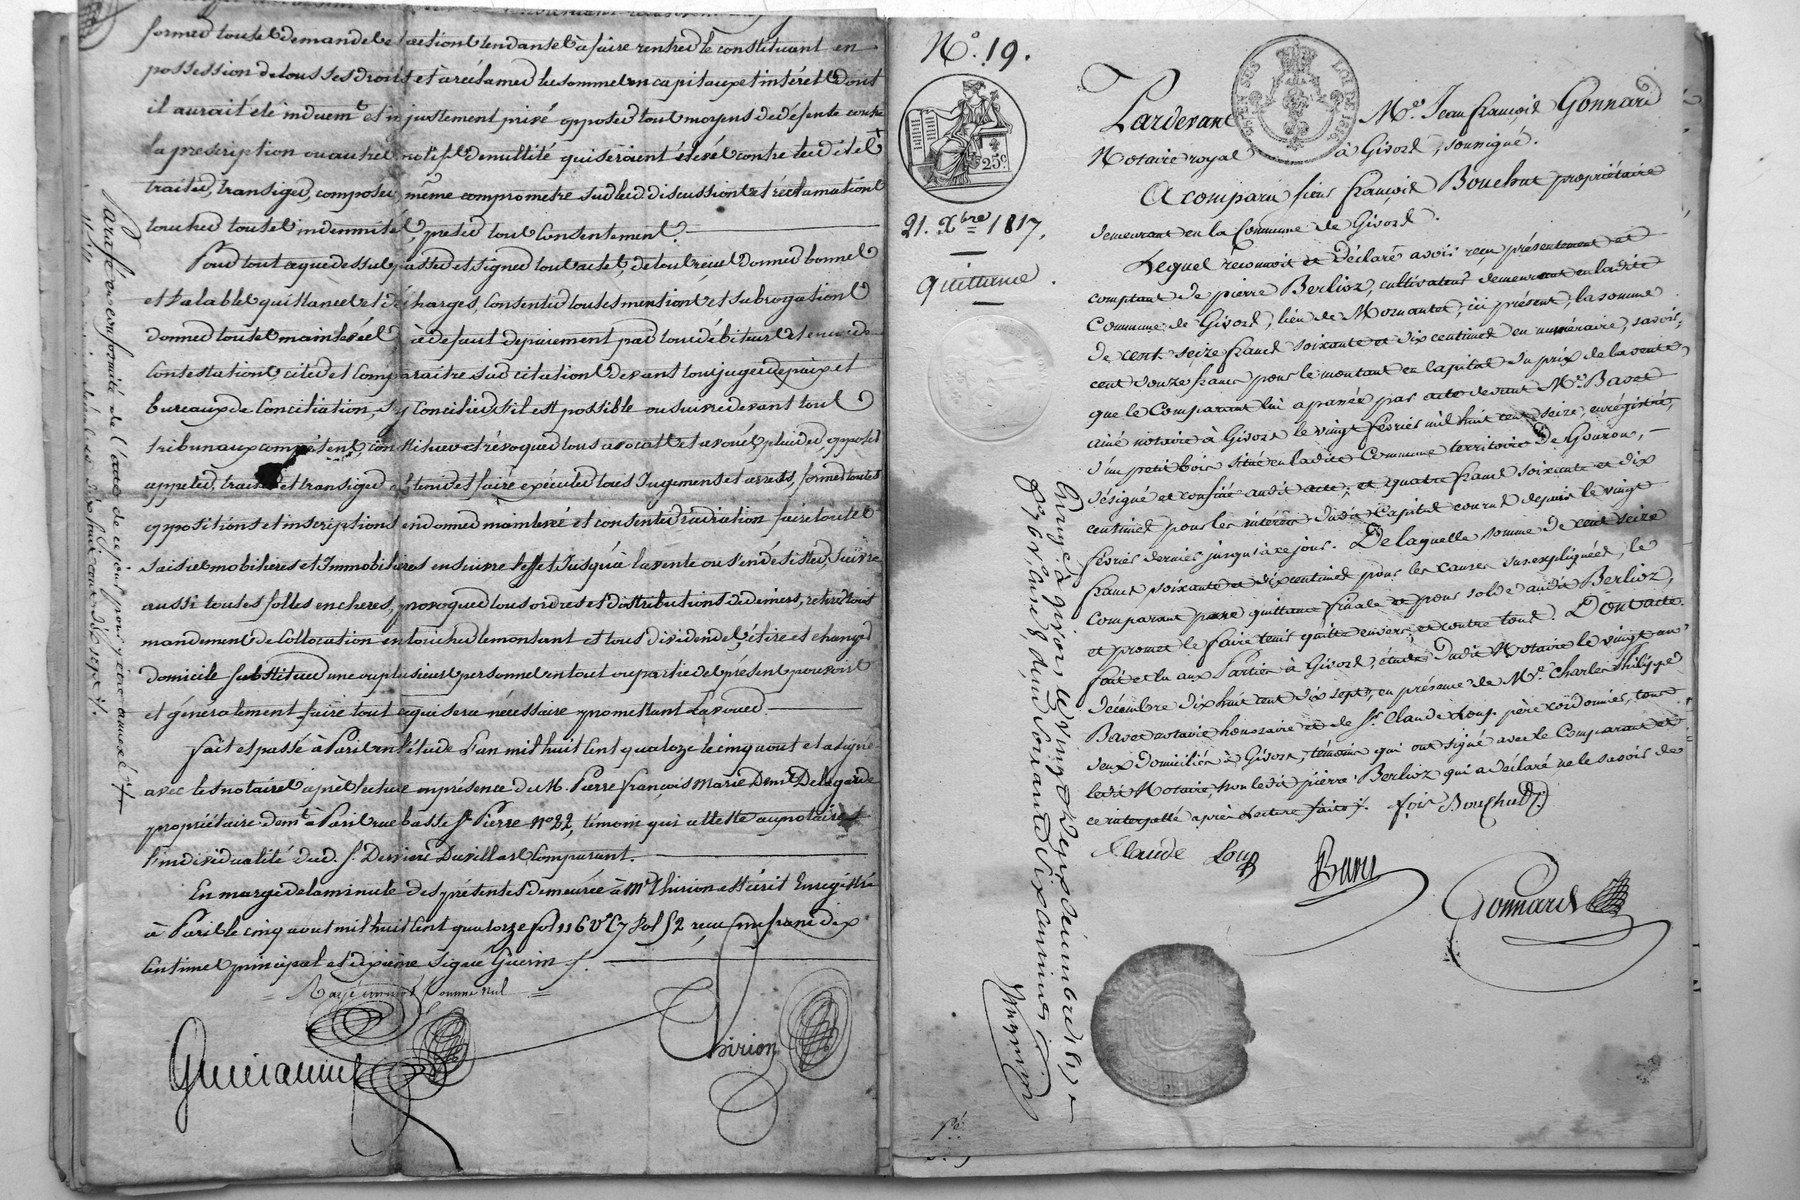 former toutes demandes et actions tendantes à faire rentrer le constituant en
possession de tous ses droits et à réclamer les sommes en capitaux et intérêts dont
il aurait été induemt et injustement privé opposer tout moyens de défense contre
la prescription ou autres motifs de nullité qui seraient élevés contre led. et etc
traiter, transiger, composer même compromettre sur les discussions et réclamations
toucher toutes indemnités, prêter tout consentement.
Pour tout ce que dessus passer et signer tout actes, de tout reçu donner bonnes
et valables quittances et décharges, consentir toutes mentions et subrogations
donner toutes mainlevées, à défaut de paiement par tout débiteurs et en cas de
contestations, citer et comparaître sur citation devant tout juges de paix et
bureaux de conciliation, s'y concilier s'il est possible ou suivre devant tout
tribunaux compétens, constituer et révoquer tous avocats et avoués, plaider, opposer
appeler, traiter et transiger obtenir et faire exécuter tous Jugemens et arrests, former toutes
oppositions et inscriptions en donner mainlevée et consentir radiation faire toutes
saisies mobilieres et Immobilieres en suivre l'effet Jusqu'à la vente ou s'en désister, suivre
aussi toutes folles encheres, provoquer tous ordres et distributions de deniers, retirer tous
mandemens de collocation en toucher le montant et tous dividendes, élire et changer
domicile substituer une ou plusieurs personnes en tout ou partie des présens pouvoirs
et généralement faire tout ce qui sera nécessaire promettant l'avouer.
fait et passé à Paris en l'étude l'an mil huit cent quatorze le cinq aout et a signé
avec les notaires après lecture en présence de M. Pierre françois Marie Denis Delagarde
propriétaire demt à Paris rue basse St Pierre no 22, témoin qui atteste aux notaires
l'individualité dud. S. Derrieu Duvillars Comparant.
En marge de la minute des présentes demeurée à Me Thirion est écrit Enregistré
à Paris le cinq aout mil huit cent quatorze fol 116 Vo C7 reçu un franc dix
centimes principal et dixième signé Guerin
Rayé un mot comme nul
Thirion
Parafé en conformité de l'acte de ce jour pour y être annexé
No. 19.
25c
21. Xbre 1817.
quittance
LOI DE 1816
Pardevant Me. Jean françois Gonnard
Notaire royal à Givors, soussigné.
A comparu sieur françois Bouchut propriétaire
demeurant en la Commune de Givors.
Lequel reconnoit et déclare avoir reçu présentement et
comptant de pierre Berlioz, cultivateur demeurant en ladite
Commune de Givors, lieu de Mornantet, ici présent, la somme
de cent seize francs soixante et dix centimes en numéraire, savoir,
cent douze francs pour le montant en Capital du prix de la vente
que le Comparant lui a passée par acte devant Me. Bavet
ainé notaire à Givors le vingt février mil huit cent seize, enrégistré,
d'un petit bois situé en ladite Commune territoire de Gouron,
désigné et confiné audit acte; et quatre francs soixante et dix
centimes pour les intérêts dudit Capital courus depuis le vingt
février dernier jusqu'à ce jour. De laquelle somme de cent seize
francs soixante et dix centimes pour les causes susexpliquées, le
Comparant passe quittance finale et pour solde audit Berlioz,
et promet le faire tenir quitte envers et contre tous. Dont acte.
fait et lu aux Parties à Givors, étude dudit Notaire le vingt un
décembre dix huit cent dix sept, en présence de Mr. Charles Philippe
Bavet notaire honoraire et de Sr. Claude Loup père cordonnier, tous
deux domiciliés à Givors, témoins qui ont signé avec le Comparant et
ledit Notaire, non ledit pierre Berlioz qui a déclaré ne le savoir de
ce interpellé après lecture faite. fois Bouchut
Claude Loup Bavet
Gonnard